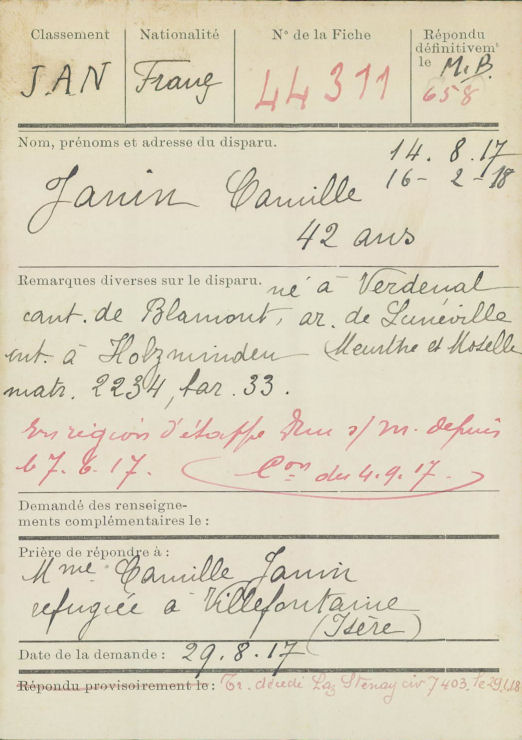 Classement
Nationalité
N° de la Fiche
Répondu
définitivem<sup>t</sup>
le M.B.
JAN
Franç
44311
658
Nom, prénoms et adresse du disparu.
14. 8. 17
16- 2 -18
Janin Camille
42 ans
Remarques diverses sur le disparu. né à Verdenal
cant. de Blamont, ar. de Lunéville
int. à Holzminden (Meurthe et Moselle
matr. 2234, bar. 33.
En région d'étappe Dun s/m. depuis
le 7. 6. 17. (Con du 4.9.17.)
Demandé des renseigne-
ments complémentaires le :
Prière de répondre à :
Mme Camille Janin
refugiée à Villefontaine
(Isère)
Date de la demande : 29.8.17
Répondu provisoirement le : Tr. décédé Laz Stenay civ 7403. le 29.1.18